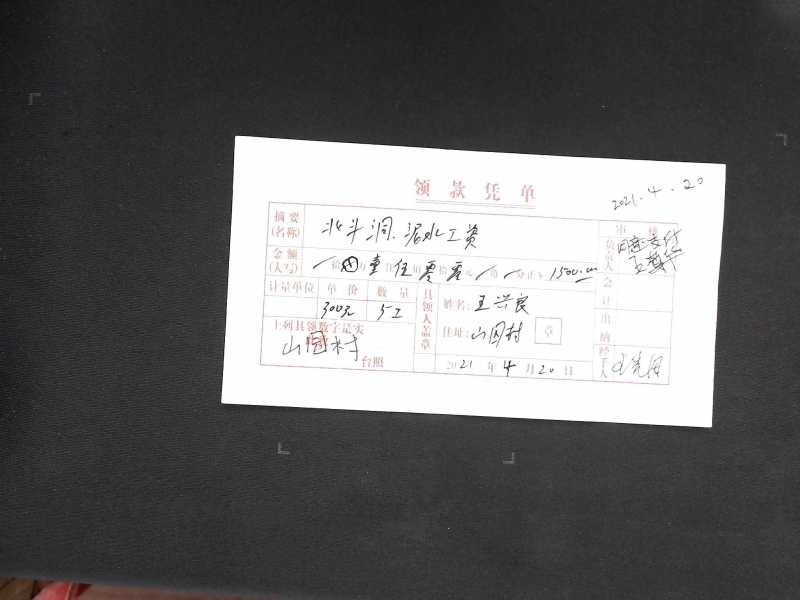 领款凭单
2021.4.20
摘要(名称) 北斗洞.泥水工资
审核
金额(大写) 拾 ⊗ 万 壹 仟 伍 佰 零 拾 零 元 角 分 ¥: 1500.00
负责人 同意支付
计量单位 单价 数量
300元 5工
具领人盖章
姓名: 王兴良
住址: 山园村 章
会计
出纳
上列具领数字是实
山园村 台照
2021 年 4 月 20 日
经手人